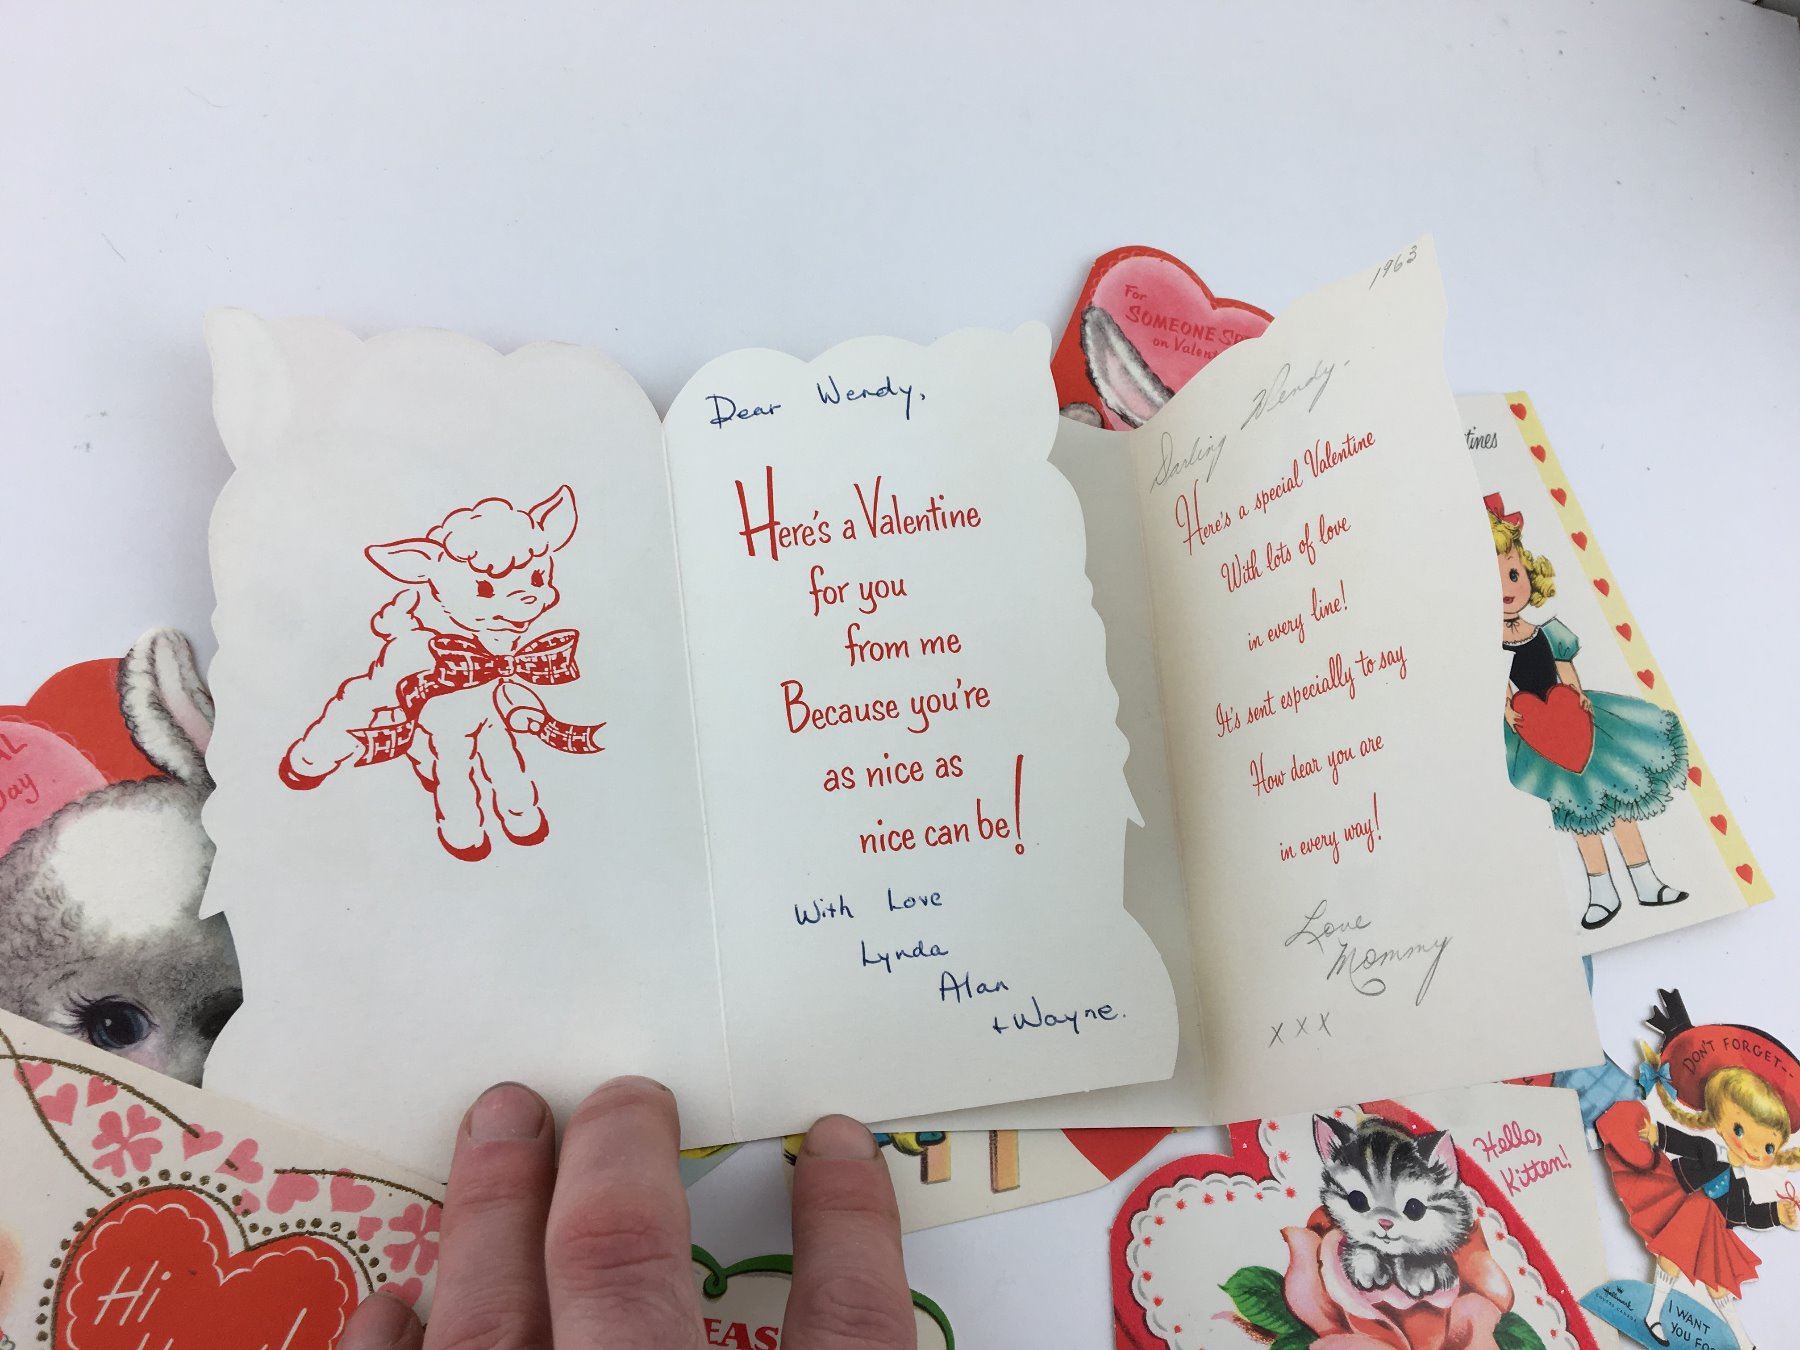 Dear Wendy,
Here's a Valentine
for you
from me
Because you're
as nice as
nice can be!
With Love
Lynda
Alan
+ Wayne.
1963
Darling Wendy.
Here's a special Valentine
With lots of love
in every line!
It's sent especially to say
How dear you are
in every way!
Love
Mommy
x x x
For
SOMEONE
on
tines
Day
Hi
EAS
Hello,
Kitten!
DON'T FORGET--
Hallmark
I WANT
YOU